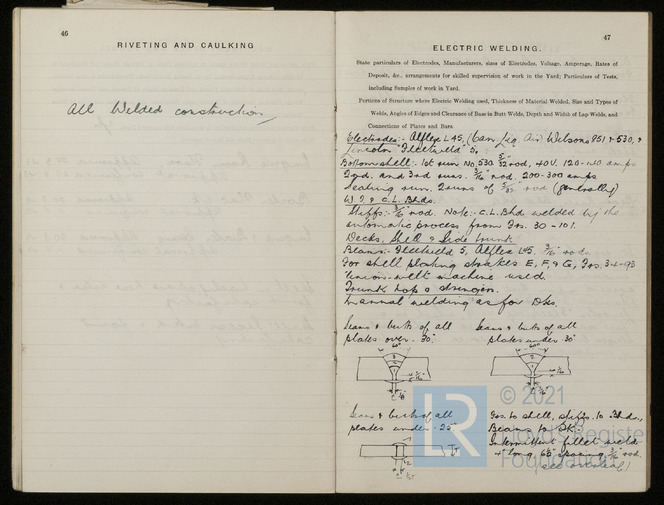 46
RIVETING AND CAULKING
All Welded construction
47
ELECTRIC WELDING.
State particulars of Electrodes, Manufacturers, sizes of Electrodes, Voltage, Amperage, Rates of
Deposit, &c., arrangements for skilled supervision of work in the Yard; Particulars of Tests,
including Samples of work in Yard.
Portions of Structure where Electric Welding used, Thickness of Material Welded, Size and Types of
Welds, Angles of Edges and Clearance of Base in Butt Welds, Depth and Width of Lap Welds, and
Connections of Plates and Bars.
Electrodes:- Alflex L45, (Can. Liq Air) Wilsons 851 & 530, &
Lincoln "Fleetweld" 5.
Bottom shell:- 1st run No. 530 5/32" rod, 40V. 120-140 amps
2nd. and 3rd runs. 3/16" rod. 200-300 amps
Sealing run. 2 runs of 5/32" rod (generally)
W.T. & C.L. Bhds.
Stiffs:- 3/16" rod. Note:- C.L. Bhd welded by the
automatic process from Frs. 30-101.
Decks, Shell & Side trunk.
Beams:- Fleetweld 5, Alflex L45. 3/16" rods.
For shell plating strakes E, F, & G, Frs. 34-93
Union-melt machine used.
Trunk top & stringers.
Manual welding as for Dks.
Seams & butts of all
plates over .30"
60°
Seams & butts of all
plates under .30"
60°
Seams & butts of all
plates under .25"
Frs. to shell, stiffs. to Bhds.,
Beams to DK:-
Intermittent fillet weld
4" long 6" spacing 3/16" rod.
(see overleaf)
© 2021
LR
Lloyd's Register
Foundation